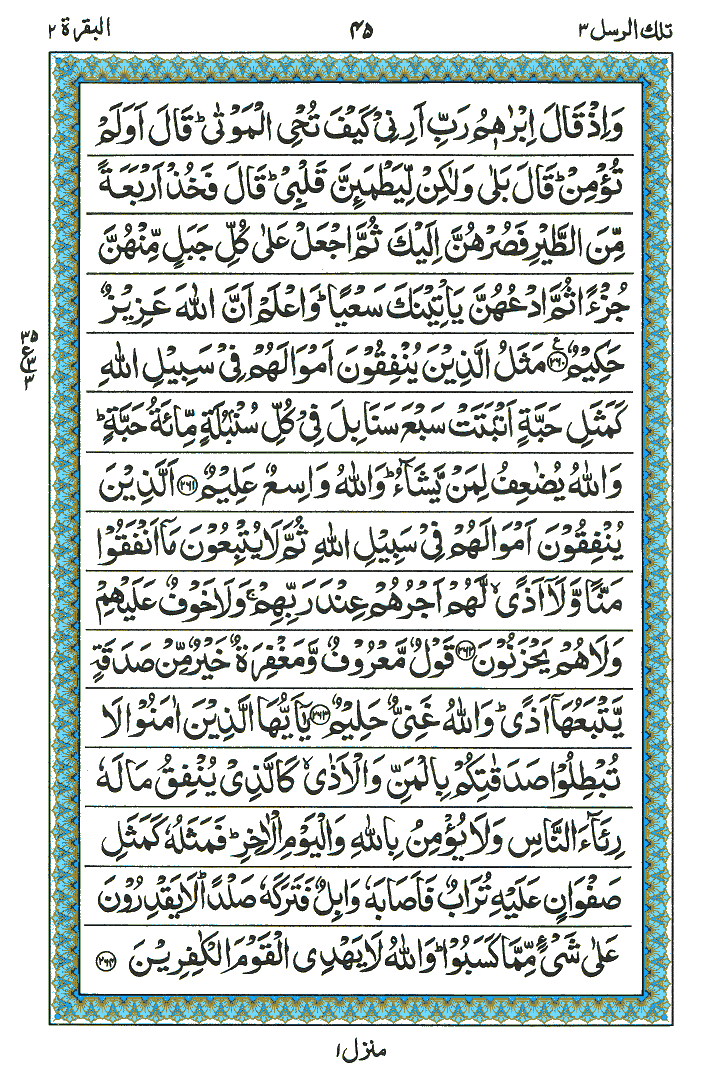 تلك الرسل ٣
٤٥
البقرة ٢
وَاِذْ قَالَ اِبْرٰهٖمُ رَبِّ اَرِنِيْ كَيْفَ تُحْيِ الْمَوْتٰىؕ قَالَ اَوَلَمْ
تُؤْمِنْؕ قَالَ بَلٰى وَلٰكِنْ لِّيَطْمَىِٕنَّ قَلْبِيْؕ قَالَ فَخُذْ اَرْبَعَةً
مِّنَ الطَّيْرِ فَصُرْهُنَّ اِلَيْكَ ثُمَّ اجْعَلْ عَلٰى كُلِّ جَبَلٍ مِّنْهُنَّ
جُزْءًا ثُمَّ ادْعُهُنَّ يَاْتِيْنَكَ سَعْيًاؕ وَاعْلَمْ اَنَّ اللّٰهَ عَزِيْزٌ
حَكِيْمٌ ﴿٢٦٠﴾ ع مَثَلُ الَّذِيْنَ يُنْفِقُوْنَ اَمْوَالَهُمْ فِيْ سَبِيْلِ اللّٰهِ
كَمَثَلِ حَبَّةٍ اَنْۢبَتَتْ سَبْعَ سَنَابِلَ فِيْ كُلِّ سُنْۢبُلَةٍ مِّائَةُ حَبَّةٍؕ
وَاللّٰهُ يُضٰعِفُ لِمَنْ يَّشَآءُؕ وَاللّٰهُ وَاسِعٌ عَلِيْمٌ ﴿٢٦١﴾ اَلَّذِيْنَ
يُنْفِقُوْنَ اَمْوَالَهُمْ فِيْ سَبِيْلِ اللّٰهِ ثُمَّ لَا يُتْبِعُوْنَ مَاۤ اَنْفَقُوْا
مَنًّا وَّلَاۤ اَذًىۙ لَّهُمْ اَجْرُهُمْ عِنْدَ رَبِّهِمْۚ وَلَا خَوْفٌ عَلَيْهِمْ
وَلَا هُمْ يَحْزَنُوْنَ ﴿٢٦٢﴾ قَوْلٌ مَّعْرُوْفٌ وَّمَغْفِرَةٌ خَيْرٌ مِّنْ صَدَقَةٍ
يَّتْبَعُهَاۤ اَذًىؕ وَاللّٰهُ غَنِيٌّ حَلِيْمٌ ﴿٢٦٣﴾ يٰۤاَيُّهَا الَّذِيْنَ اٰمَنُوْا لَا
تُبْطِلُوْا صَدَقٰتِكُمْ بِالْمَنِّ وَالْاَذٰىۙ كَالَّذِيْ يُنْفِقُ مَالَهٗ
رِئَآءَ النَّاسِ وَلَا يُؤْمِنُ بِاللّٰهِ وَالْيَوْمِ الْاٰخِرِؕ فَمَثَلُهٗ كَمَثَلِ
صَفْوَانٍ عَلَيْهِ تُرَابٌ فَاَصَابَهٗ وَابِلٌ فَتَرَكَهٗ صَلْدًاؕ لَا يَقْدِرُوْنَ
عَلٰى شَيْءٍ مِّمَّا كَسَبُوْاؕ وَاللّٰهُ لَا يَهْدِي الْقَوْمَ الْكٰفِرِيْنَ ﴿٢٦٤﴾
٣٥
ع
٣
٣
منزل ١